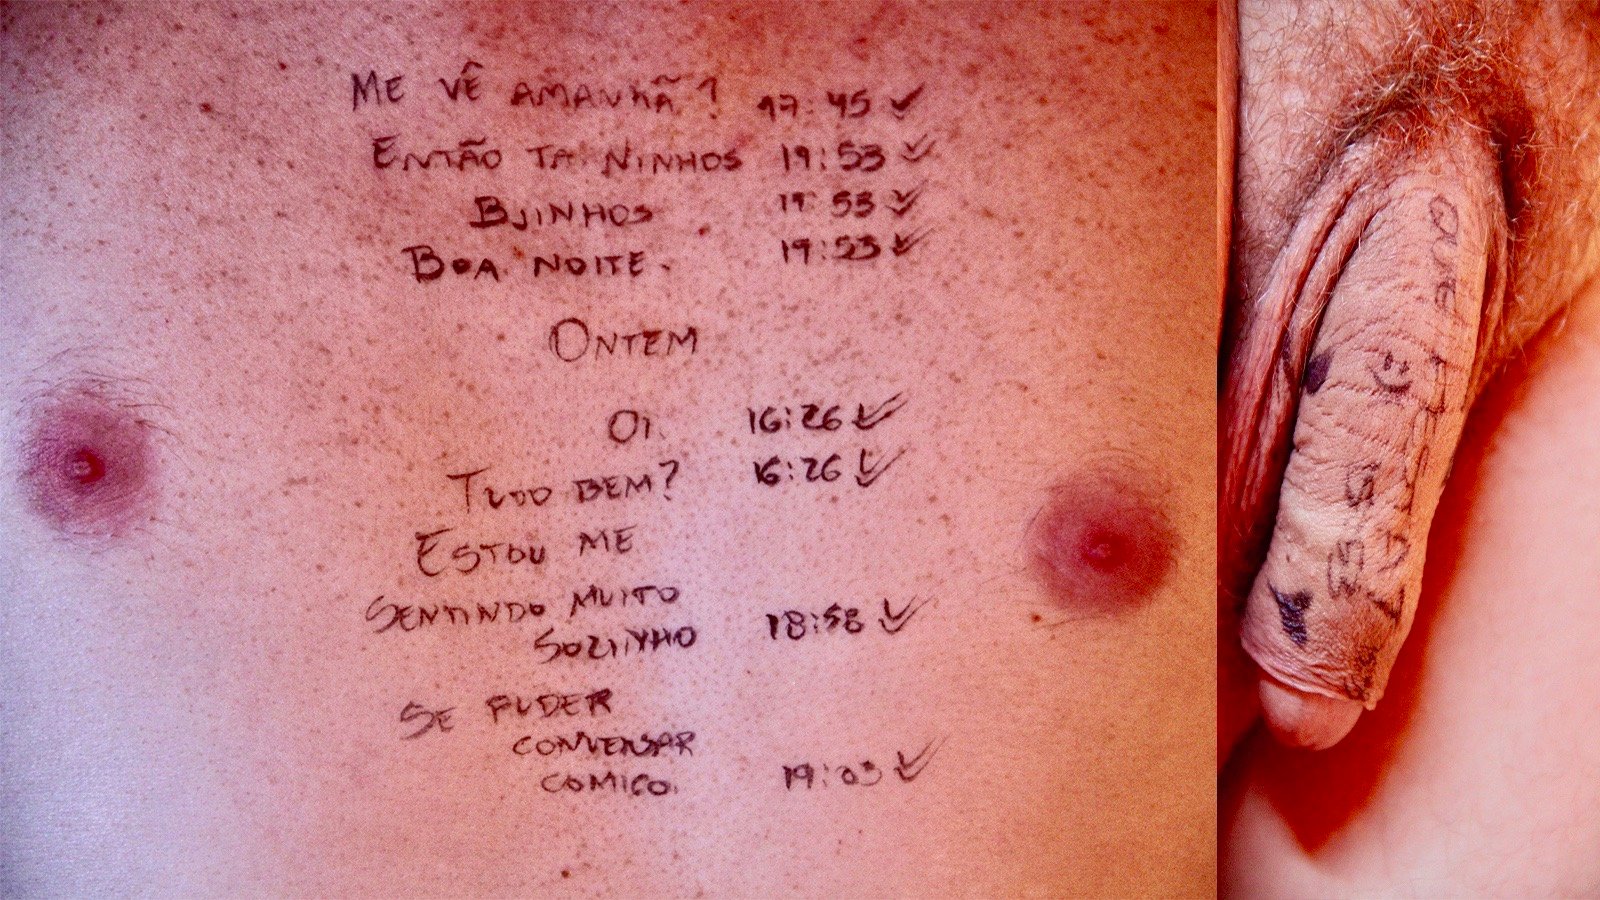 ME VÊ AMANHÃ? 17:45 ✓
ENTÃO TA. NINHOS 19:53 ✓✓
BJINHOS 19:53 ✓✓
BOA NOITE. 19:53 ✓✓
ONTEM
OI. 16:26 ✓✓
TUDO BEM? 16:26 ✓✓
ESTOU ME
SENTINDO MUITO
SOZINHO 18:58 ✓✓
SE PUDER
CONVERSAR
COMIGO. 19:03 ✓✓
QUE
E